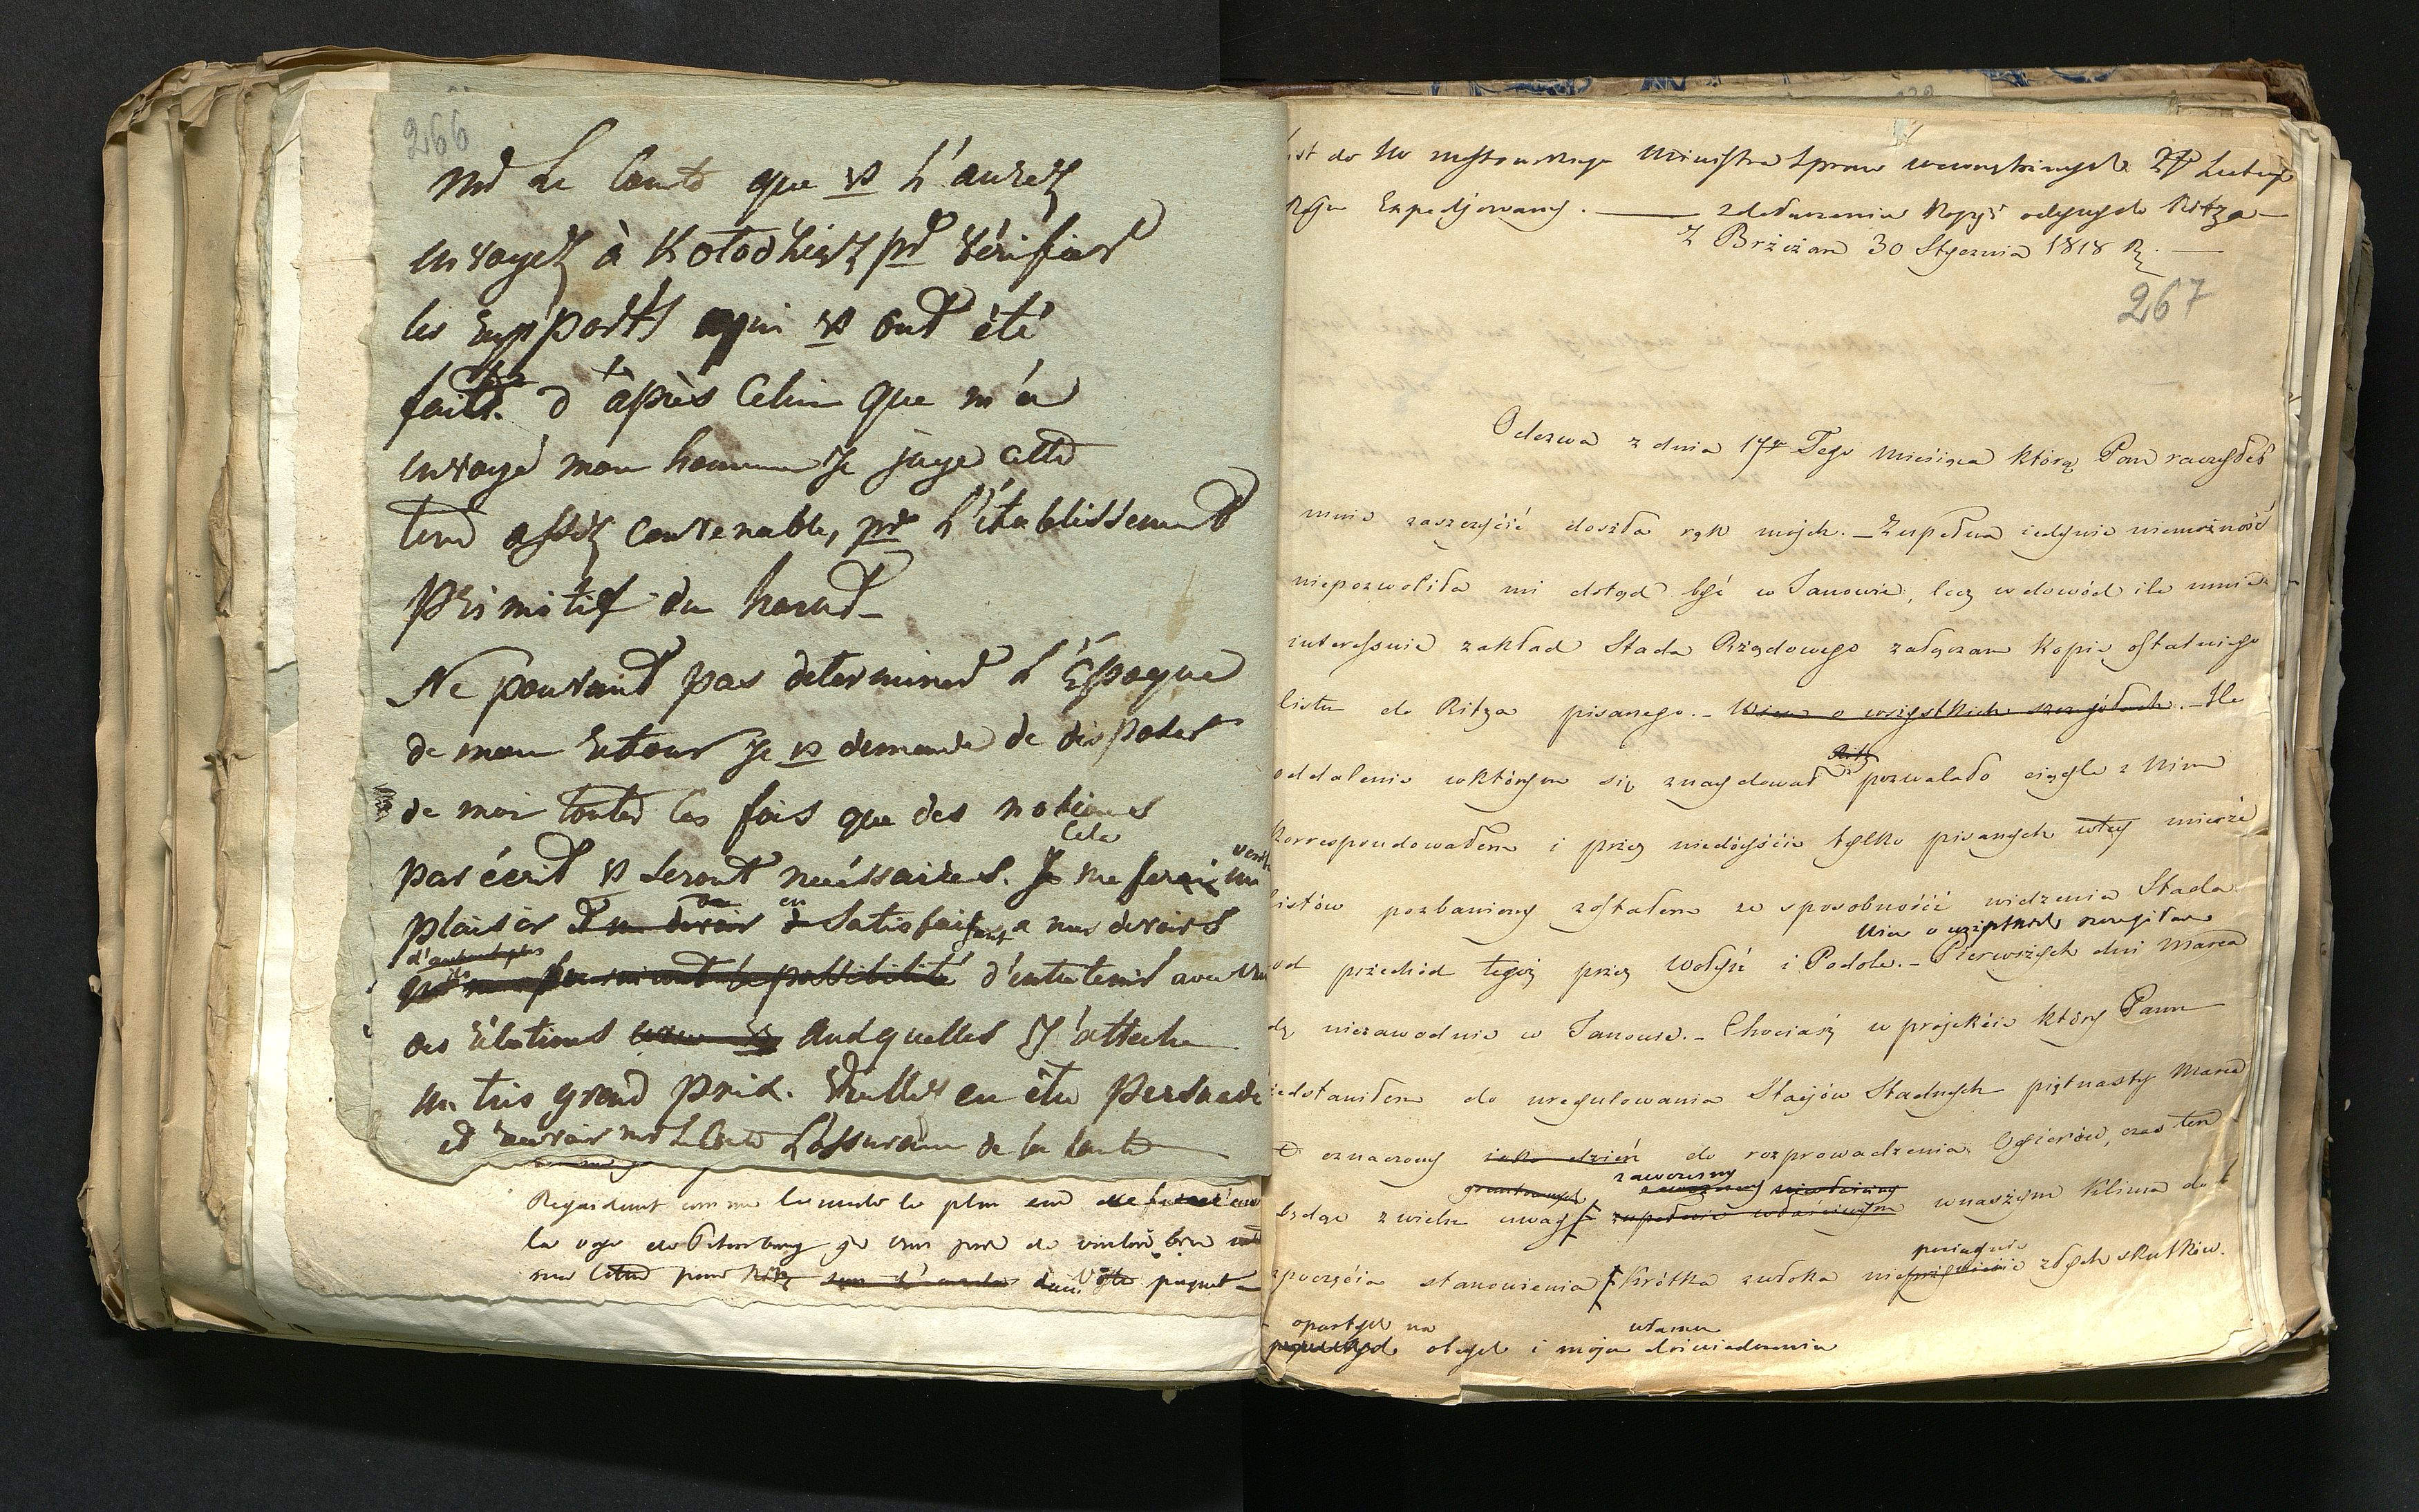 266
Mr Le Comte que vs l'aurez
envoyez à Kołodziesz pr vérifier
les rapports qui vs ont été
faits. d'après Celui que m'a
envoyé mon homme je juge cette
terre assez convenable, pr L'établissement
Primitif du haras
Ne pouvant pas determiner L'Époque
de mon retour je vs demande de disposer
de moi toutes les fois que des notions
Cela
par écrit vs seront nécessaires. Je me ferai un
plaisir d'un devoir de satisfaisant a mes devoirs
d'autant plus
la possibilité d'entretenir avec
des rélations auxquelles J'attache
un très grand prix. Veuillez en être Persuadé
et recevoir Mr Le Comte L'assurance de la haute
Regardant comme le mode le plus
la voye de Petersbourg je vous prie de vouloir bien
ma lettre pour Ritz dans Vôtre paquet
List do Mostowskiego Ministra Spraw wewnętrznych Lutego
Roku Expedjowany. — z dołączeniem Kopji odezwy do Ritza —
Z Brzeżan 30 Stycznia 1818 R. —
267
Odezwa z dnia 17go Tego Miesiąca którą Pan raczyłeś
mnie zaszczycić doszła rąk mojch. — Zupełna iedynie niemożność
niepozwoliła mi dotąd być w Janowie, lecz w dowód ile mnie
interessuie zakład Stada Rządowego załączam Kopię ostatniego
listu do Ritza pisanego. — Wiem o wszystkich szczegółach. — Ile
Ritz
oddalenie w którym się znaydował pozwalało ciągle z Nim
korrespondowałem i przez niedójście tylko pisanych mierze
listów pozbawiony zostałem ze sposobności widzenia Stada
Wiem o wszystkich szczegółach
przechód tegoż przez Wołyń i Podole. — Pierwszych dni Marca
niezawodnie w Janowie. — Chociaż w projekcie który Panu
przedstawiłem do uregulowania Stajów Stadnych piętnasty Marca
oznaczony iako dzień do rozprowadzenia Ogierów, czas ten
gruntownych zawczesny niewłaściwy
będąc z wielu uwag zupełnie właściwym w naszym Klima do
pociągnie
rozpoczęcia stanowienia Krótka zwłoka nie złych skutków.
opartych na własnem
obcych i mojem doświadczeniu